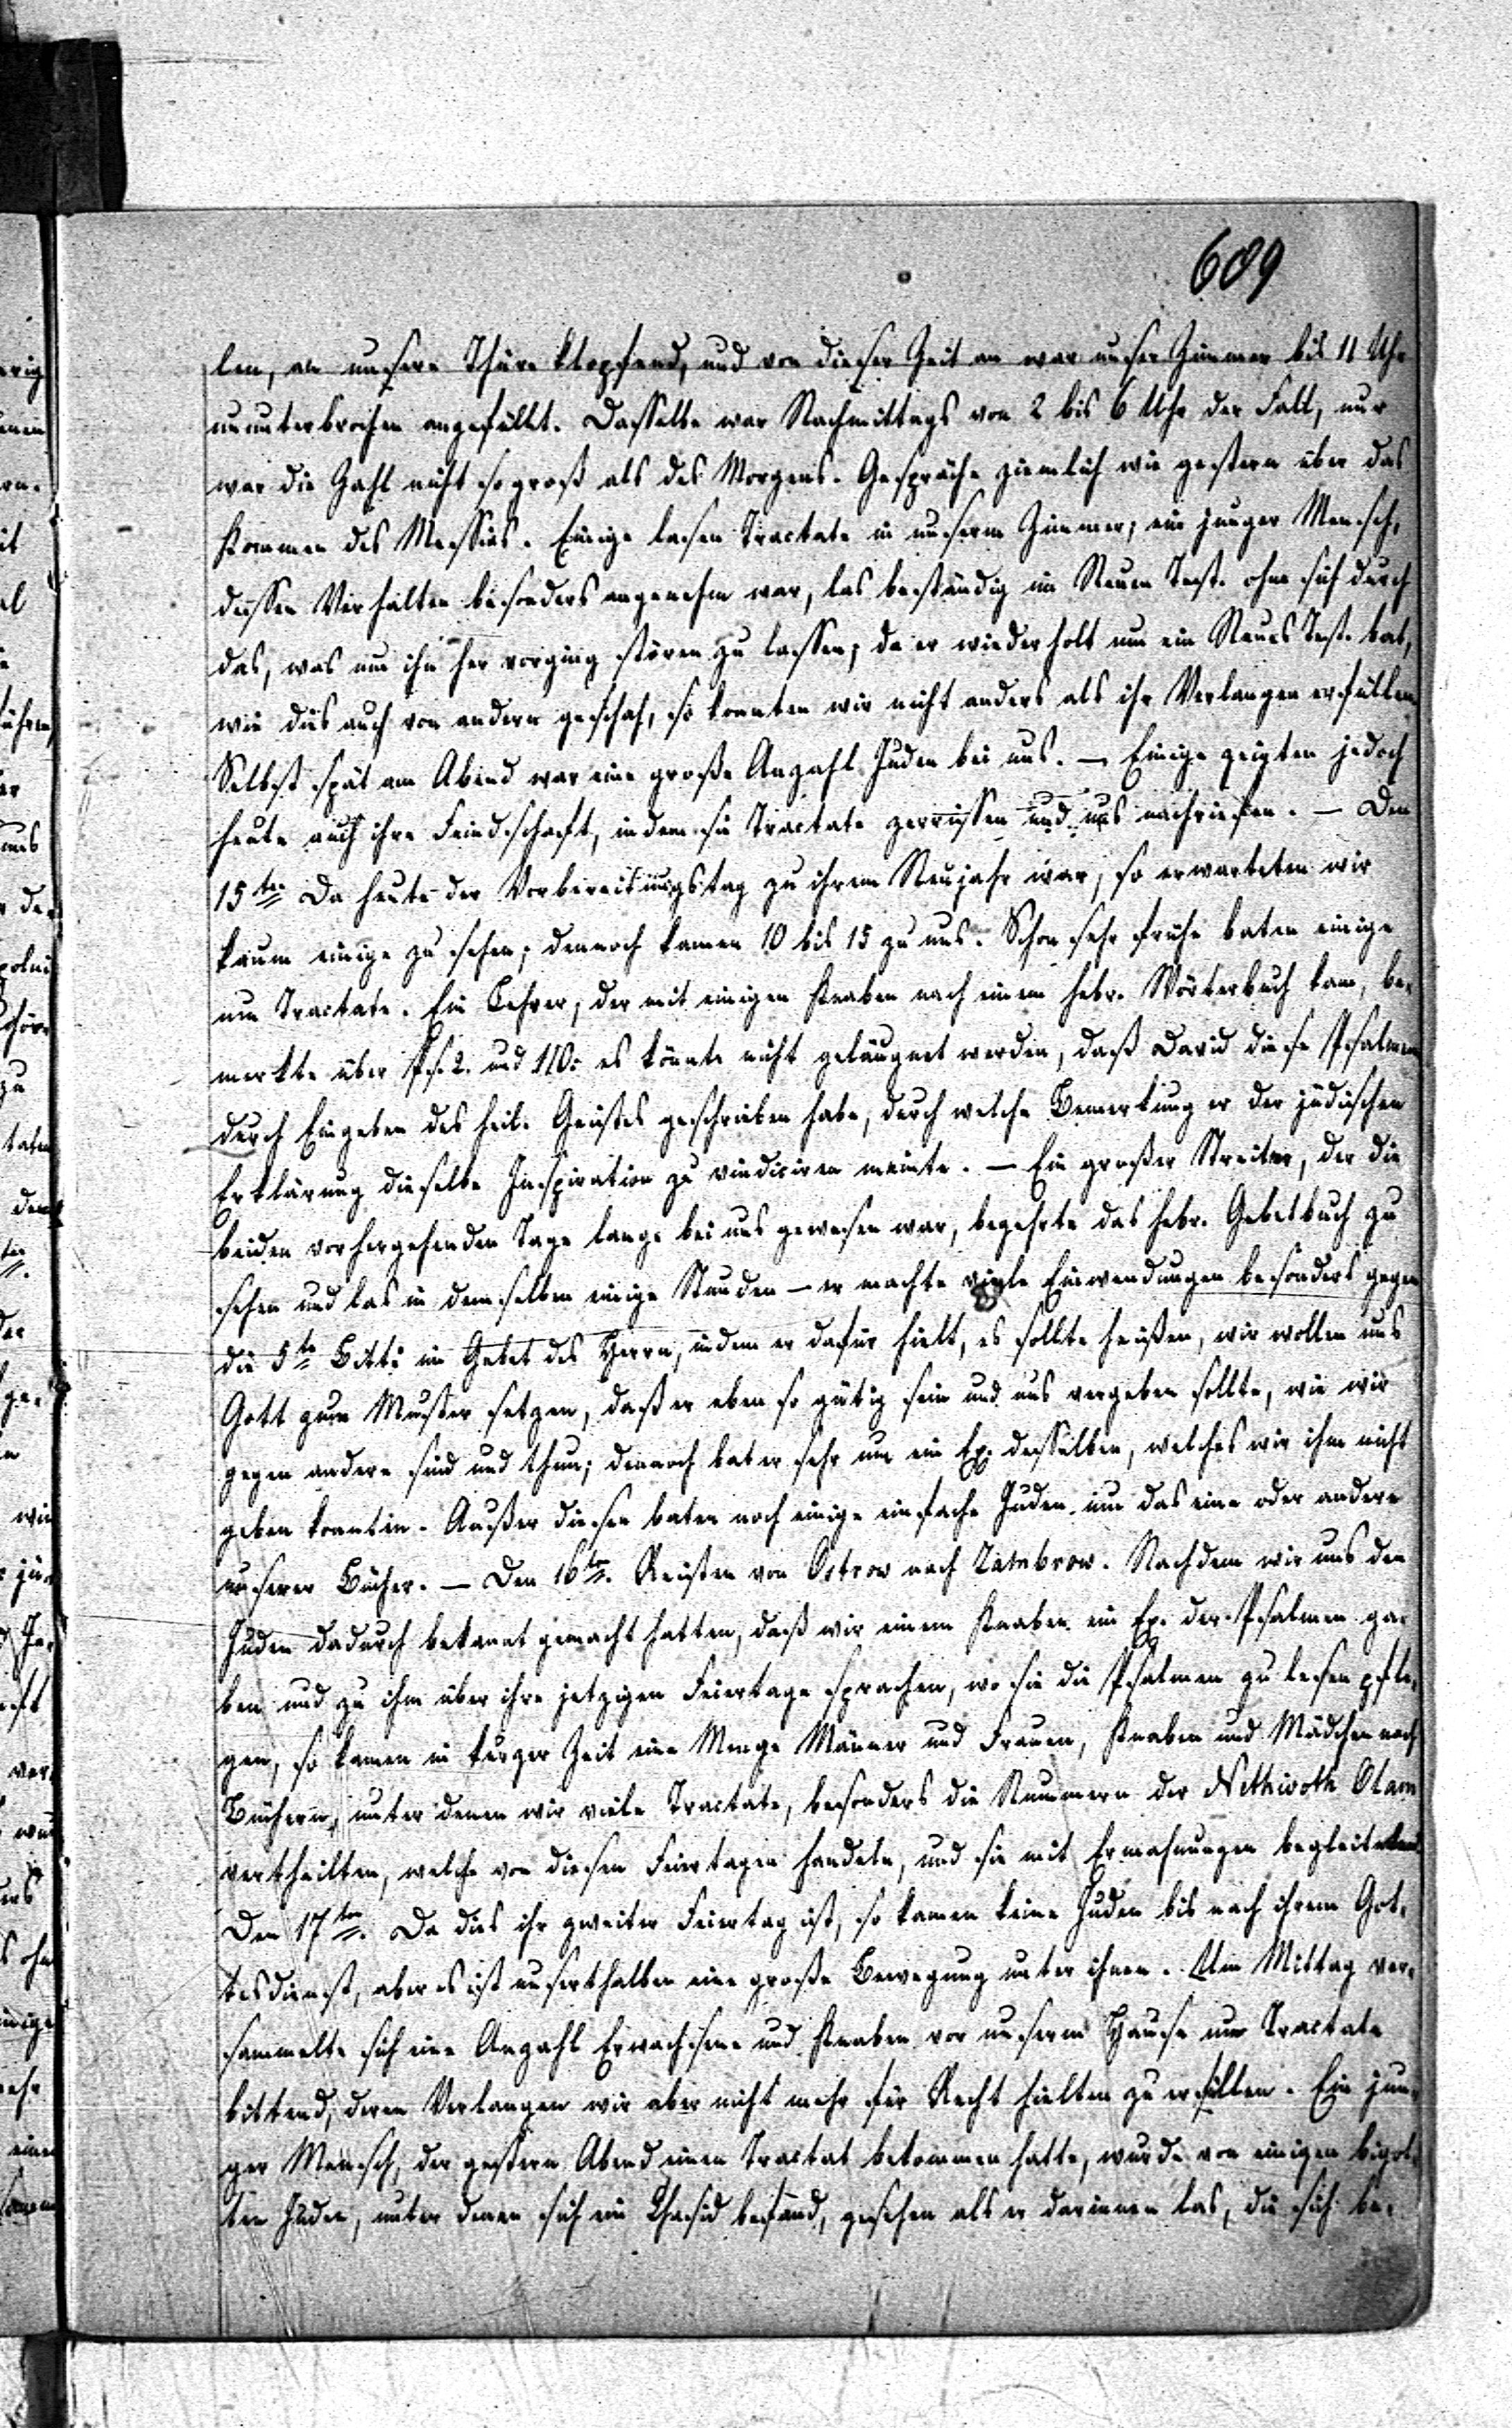 609
len, an unsere Thüre klopfend, und von dieser Zeit an war unser Zimmer bis 11 Uhr
ununterbrochen angefüllt. Dasselbe war Nachmittags von 2 bis 6 Uhr der Fall, nur
war die Zahl nicht so groß als des Morgens. Gespräche ziemlich wie gestern über das
Kommen des Messias. Einige lasen Tractate in unserm Zimmer; ein junger Mensch,
dessen Verhalten besonders angenehm war, las beständig im Neuen Test. ohne sich durch
das, was um ihn her vorging stören zu lassen; da er wiederholt um ein Neues Test. bat,
wie dies auch von andern geschah, so konnten wir nicht anders als ihr Verlangen erfüllen
Selbst spät am Abend war eine große Anzahl Juden bei uns. — Einige zeigten jedoch
heute auch ihre Feindschaft, indem sie Tractate zerrissen und uns nachriefen. — Den
15ten Da heute der Vorbereitungstag zu ihrem Neujahr war, so erwarteten wir
kaum einige zu sehen; dennoch kamen 10 bis 15 zu uns. Schon sehr frühe baten einige
um Tractate. Ein Lehrer, der mit einigen Knaben nach einem hebr. Wörterbuch kam, be-
merkte über Ps. 2. und 110: es könnte nicht geläugnet werden, daß David diese Psalmen
durch Eingeben des heil. Geistes geschrieben habe, durch welche Bemerkung er der jüdischen
Erklärung dieselbe Inspiration zu vindiciren meinte. — Ein großer Streiter, der die
beiden vorhergehenden Tage lange bei uns gewesen war, begehrte das hebr. Gebetbuch zu
sehen und las in demselben einige Stunden — er machte viele Einwendungen besonders gegen
die 5te Bitte im Gebet des Herrn, indem er dafür hielt, es sollte heißen, wir wollen uns
Gott zum Muster setzen, daß er eben so gütig sein und uns vergeben sollte, wie wir
gegen andere sind und thun; dennoch bat er sehr um ein Ex. desselben, welches wir ihm nicht
geben konnten. Außer diesen baten noch einige einfache Juden um das eine oder andere
unserer Bücher. — Den 16ten. Reisten von Ostrow nach Zambrow. Nachdem wir uns den
Juden dadurch bekannt gemacht hatten, daß wir einem Knaben ein Ex. der Psalmen ga-
ben und zu ihm über ihre jetzigen Feiertage sprachen, wo sie die Psalmen zu lesen pfle-
gen, so kamen in kurzer Zeit eine Menge Männer und Frauen, Knaben und Mädchen nach
Büchern, unter denen wir viele Tractate, besonders die Nummern der Nethivoth Olam
vertheilten, welche von diesen Feiertagen handeln, und sie mit Ermahnungen begleiteten.
Den 17ten. Da dies ihr zweiter Feiertag ist, so kamen keine Juden bis nach ihrem Got-
tesdienst, aber es ist unserthalben eine große Bewegung unter ihnen. Um Mittag ver-
sammelte sich eine Anzahl Erwachsene und Knaben vor unserm Hause um Tractate
bittend, deren Verlangen wir aber nicht mehr für Recht hielten zu erfüllen. Ein jun-
ger Mensch, der gestern Abend einen Tractat bekommen hatte, wurde von einigen bigot-
ten Juden, unter denen sich ein Chasid befand, gesehen als er darinnen las, die sich be-